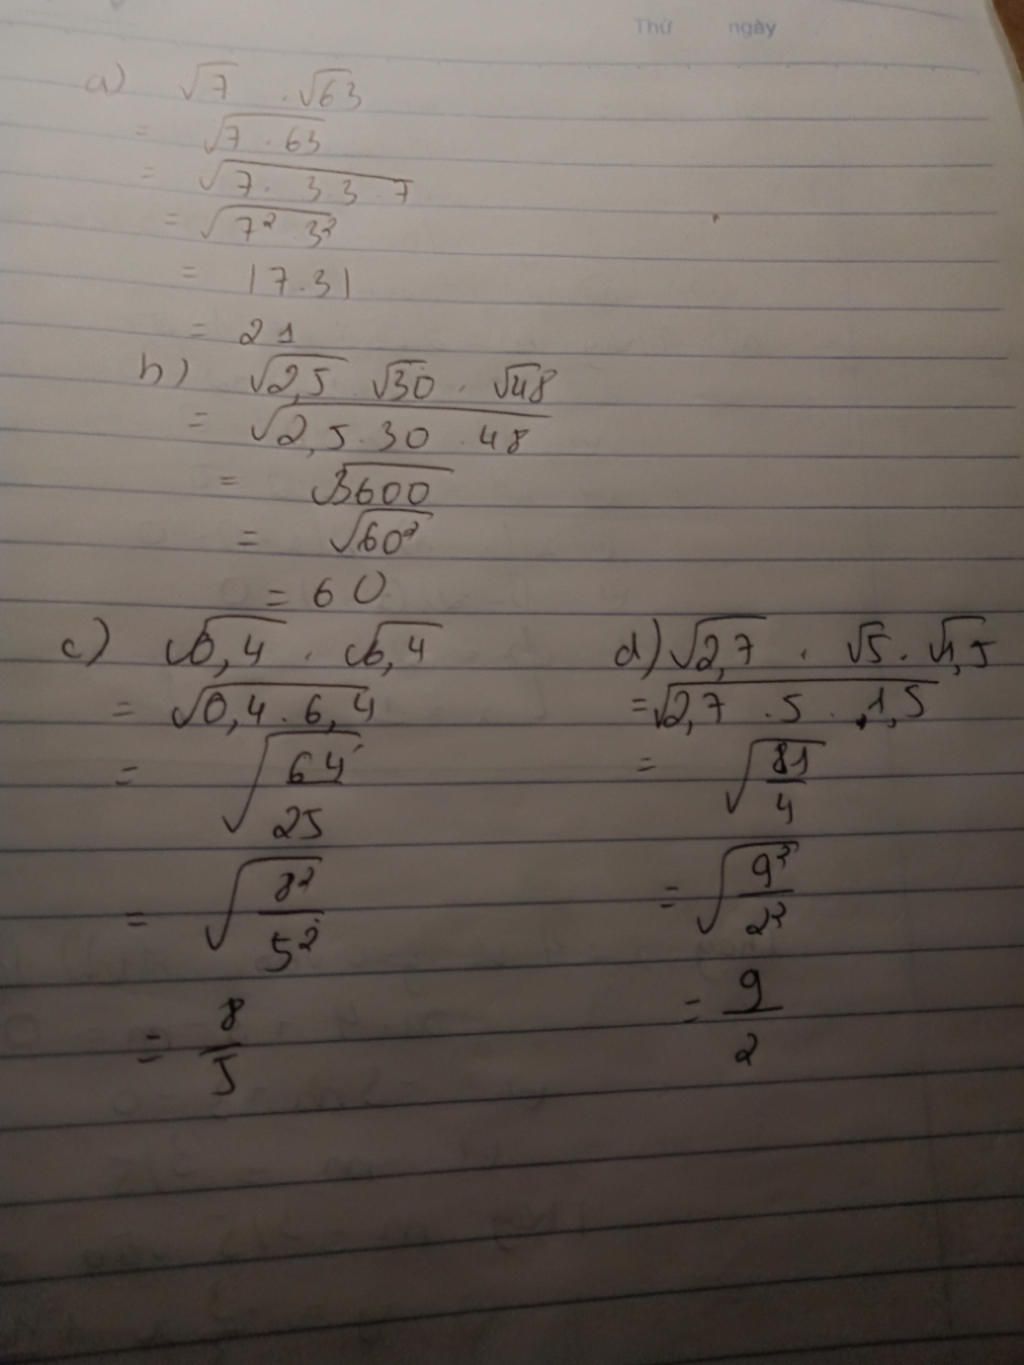 Thứ ngày
a) √7 . √63
= √7 . 63
= √7 . 3.3 . 7
= √7² . 3²
= |7.3|
= 21
b) √2,5 . √30 . √48
= √2,5 . 30 . 48
= √3600
= √60²
= 60
c) √0,4 . √6,4
= √0,4 . 6,4
= √64/25
= √8²/5²
= 8/5
d) √2,7 . √5 . √1,5
= √2,7 . 5 . 1,5
= √81/4
= √9²/2²
= 9/2